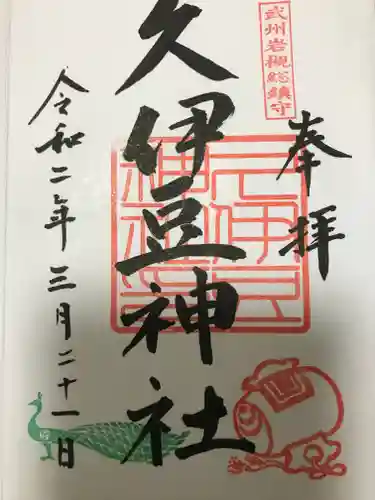 武州岩槻総鎮守
奉拝
久伊豆神社
久伊豆神社
令和二年三月二十一日